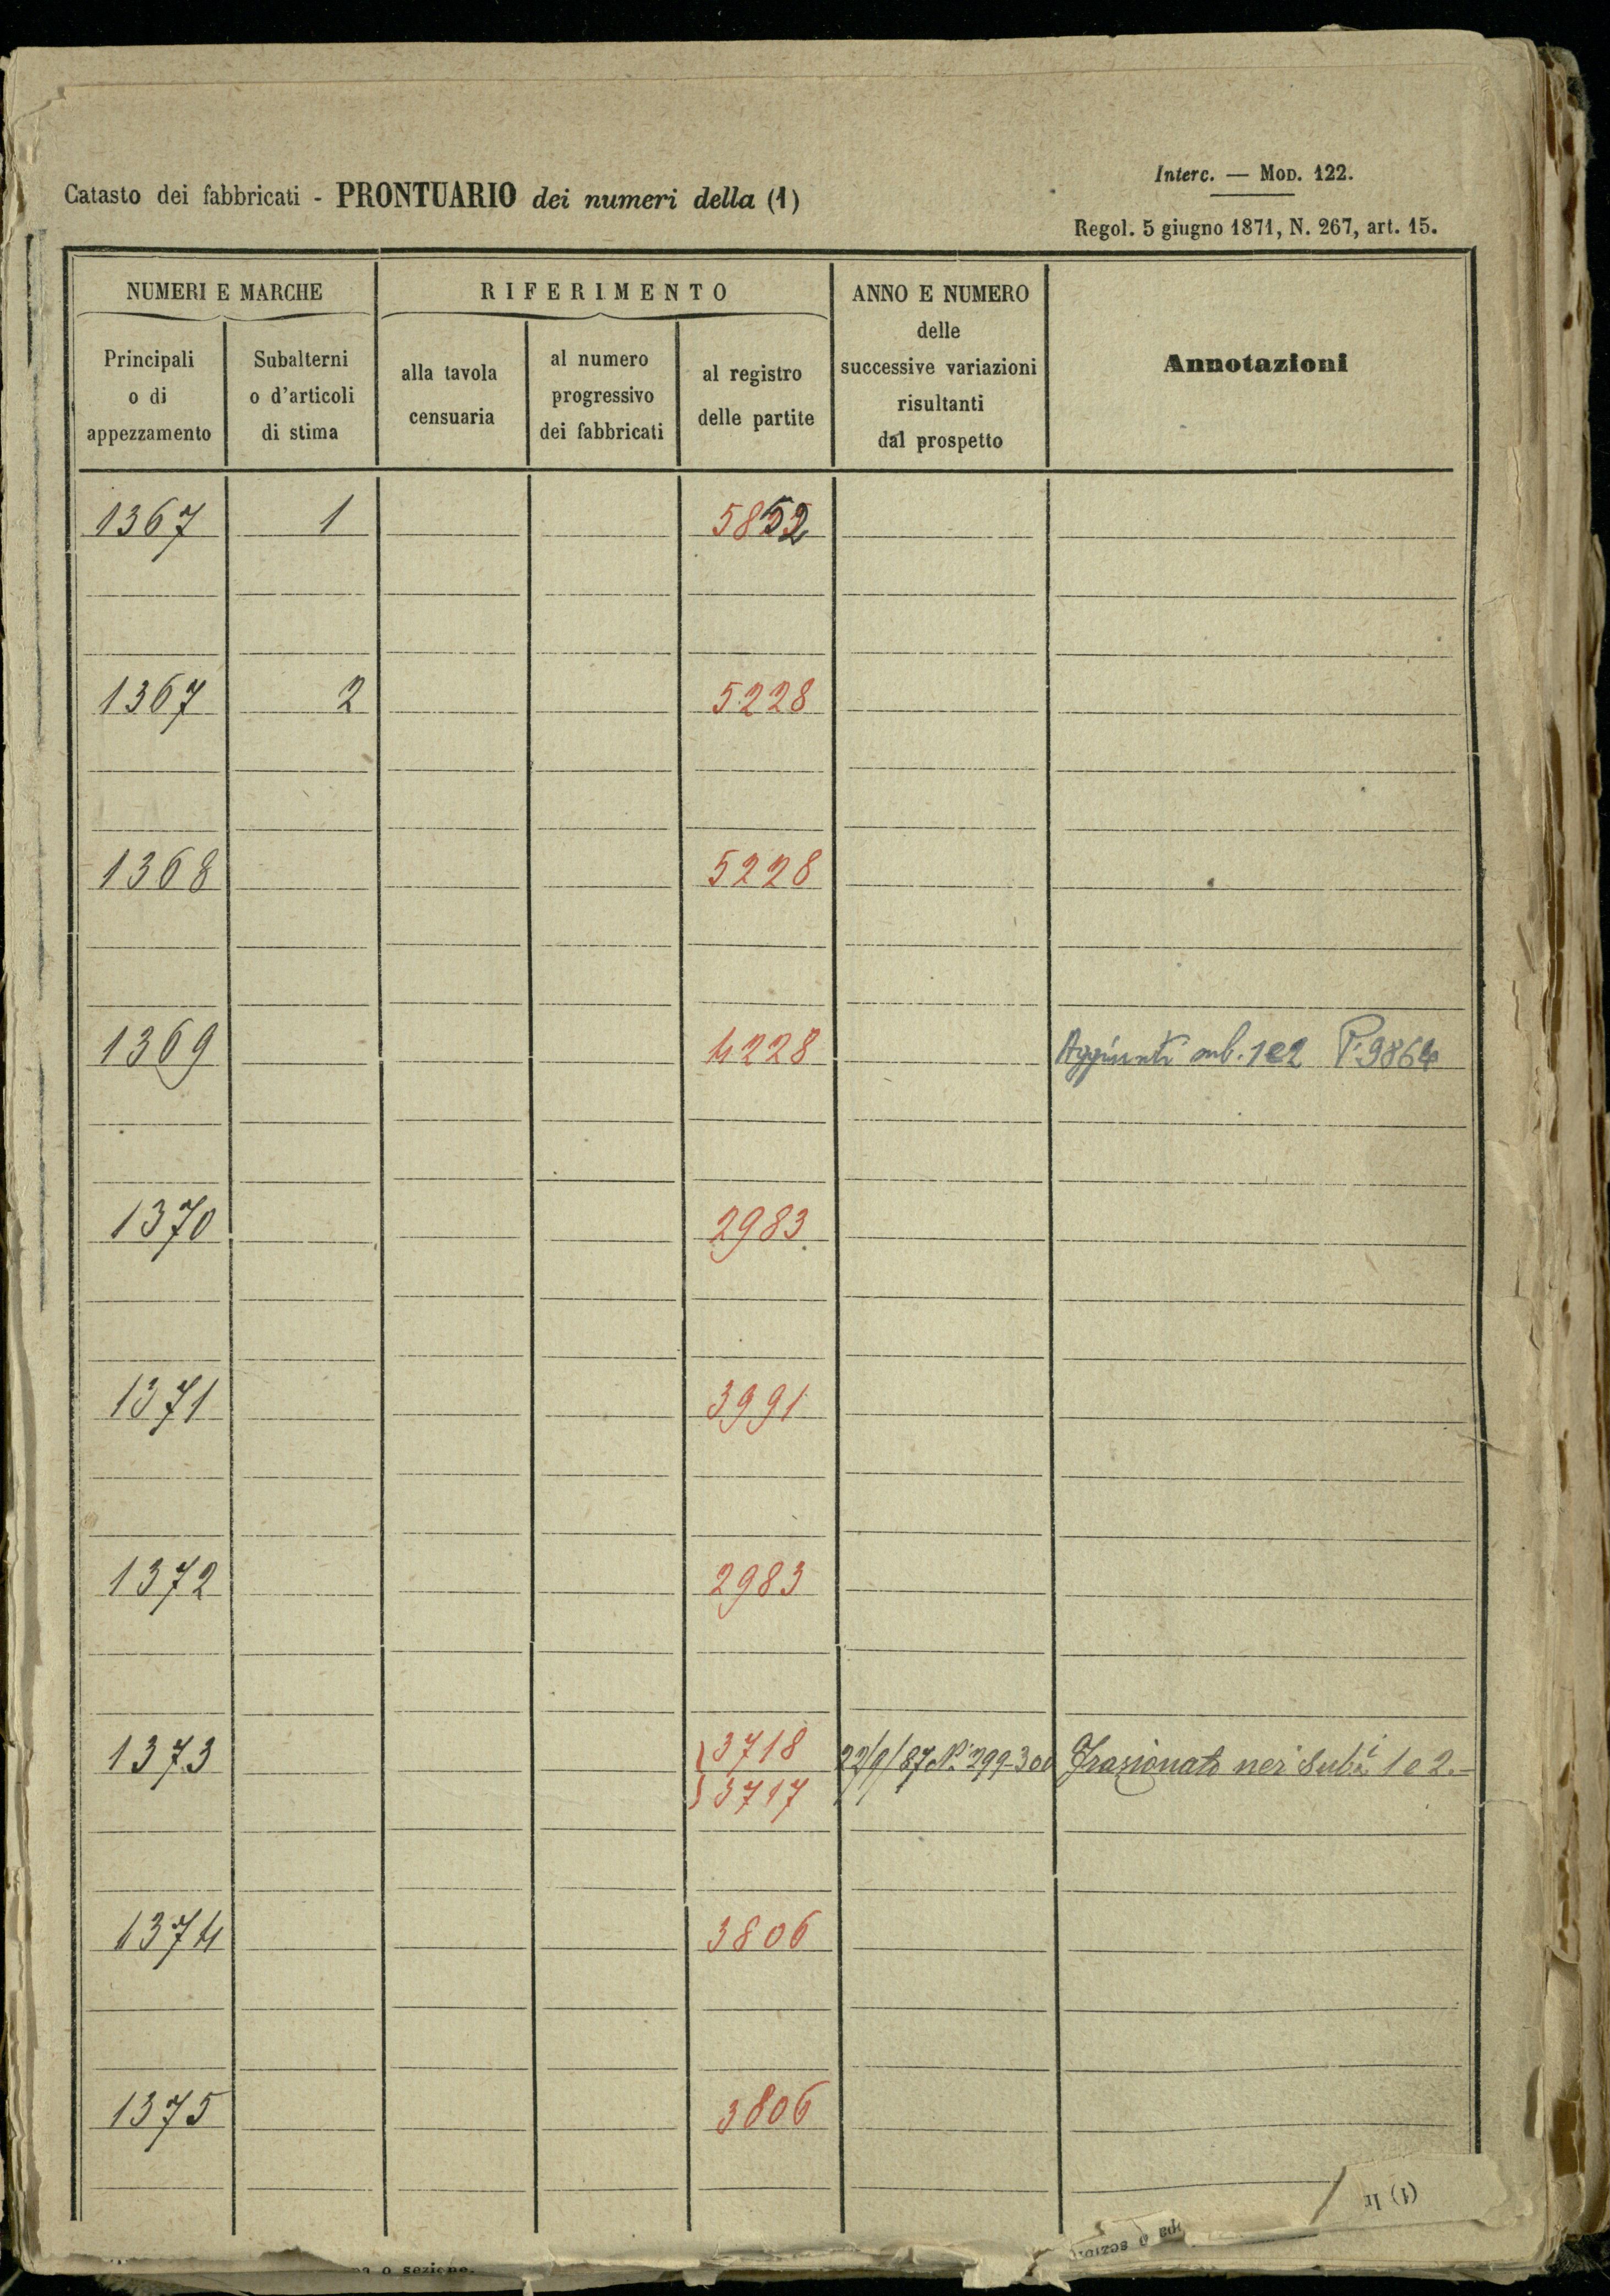 Interc. — Mod. 122.
Catasto dei fabbricati - PRONTUARIO dei numeri della (1)
Regol. 5 giugno 1871, N. 267, art. 15.
NUMERI E MARCHE
RIFERIMENTO
ANNO E NUMERO
delle
successive variazioni
risultanti
dal prospetto
Annotazioni
Principali
o di
appezzamento
Subalterni
o d'articoli
di stima
alla tavola
censuaria
al numero
progressivo
dei fabbricati
al registro
delle partite
1367 1 5852
1367 2 5228
1368 5228
1369 4228 Aggiunti sub. 1 e 2 P. 9864
1370 2983
1371 3991
1372 2983
1373 3718 22/9/87 N. 299-300 Frazionato nei Sub.i 1 e 2.-
3717
1374 3806
1375 3806
(1)
o sezione.